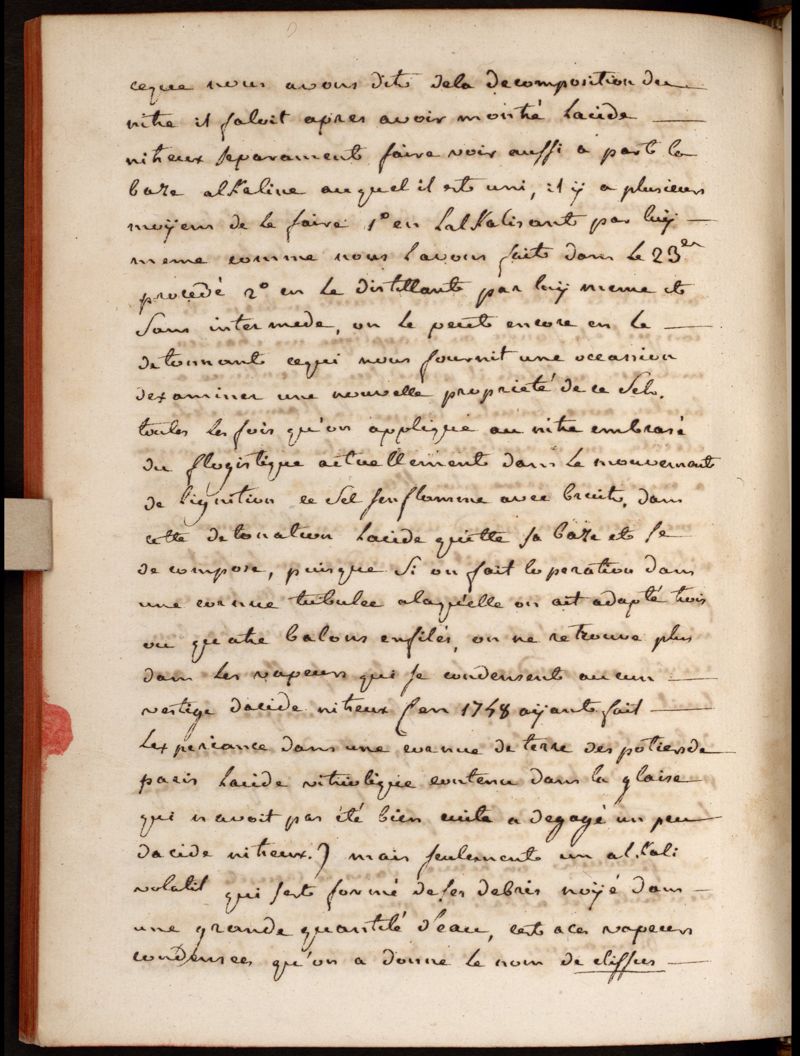 ceque nous avons dit dela decomposition du
nitre il faloit apres avoir montré lacide
nitreux separament faire voir aussi a part la
baze alKaline auquel il est uni, il y a plusieurs
moÿens de le faire 1° en LalKalisant par luÿ
meme comme nous lavons fait dans le 23er
procedé 2° en le distillant par luÿ meme et
sans intermede, on le peut encore en le
detonnant cequi nous fournit une occassion
dexaminer une nouvelle proprieté de ce sel.
toutes les fois qu'on applique au nitre embrasé
du flogistique actuellement dans le mouvement
de l'ignition ce sel senflamme avec bruit, dans
cette detonation lacide quitte sa baze et se
decompose, puisque si on fait loperation dans
une cornue tubulee alaquelle on ait adapté trois
ou quatre balons enfilés, on ne retrouve plus
dans les vapeurs qui se condensent aucun
vestige dacide nitreux (en 1748 aÿant fait
Lexperiance dans une cornue de terre des potiers de
paris lacide vitriolique contenu dans la glaise
qui n avoit pas été bien cuite a degagé un peu
dacide nitreux.) mais seulement un alKali
volatil qui sest formé de ses debris noÿé dans
une grande quantité d'eau, cest a ces vapeurs
condensees qu'on a donne le nom de clissus